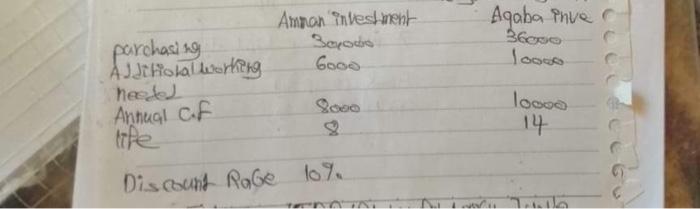 Amman investment Aqaba inve
purchasing 30,000 36000
Additional working 6000 10000
needed
Annual C.F 8000 10000
life 8 14
Discount Rate 10%